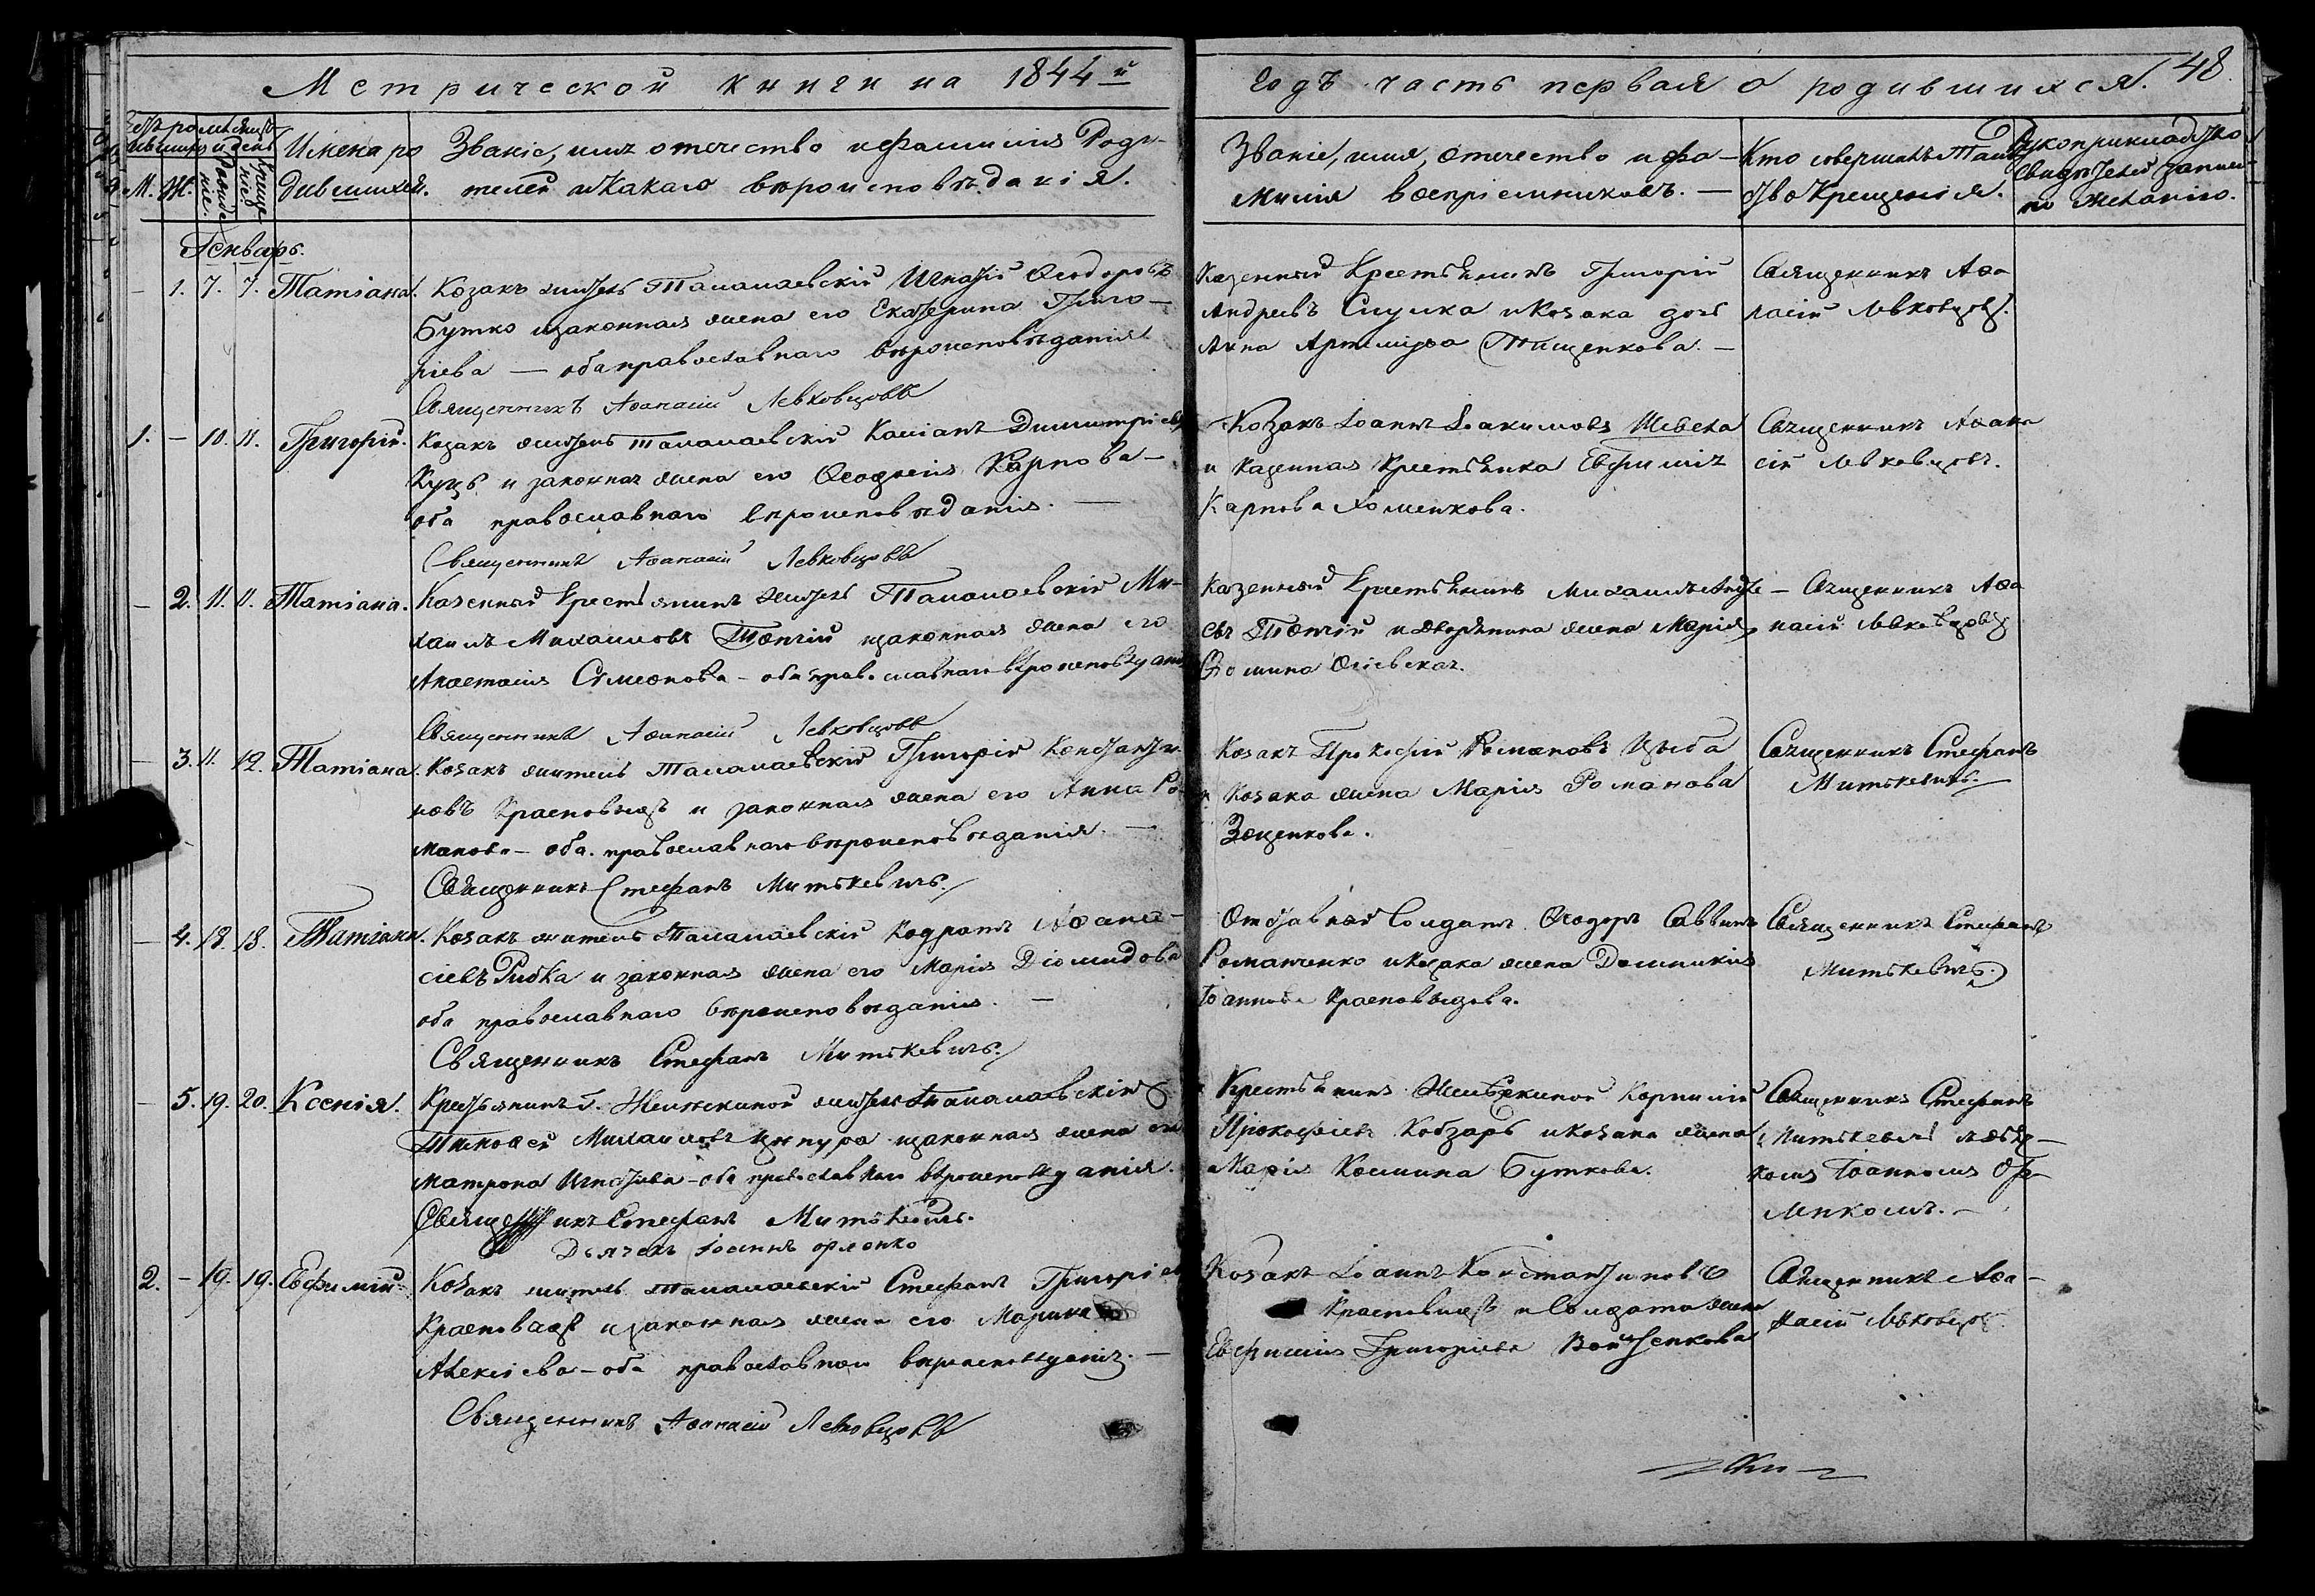 Метрической книги на 1844й
годъ часть первая о родившихся. 48.
М. Ж.
Рожденіе.
Крещеніе.
Имена ро
дившихся.
Званіе, имя отечество и фамилія Роди-
телей и какаго вѣроисповѣданія.
Званіе, имя, отечество и фа-
милія воспріемниковъ. —
Кто совершалъ Таин
ство Крещенія.
Рукоприкладство
свидѣтелей записи
по желанію.
Генварь.
— 1. 7. 7. Татіана.
Козакъ житель Талалаевскій Игнатій Ѳеодоровъ
Бутко и законная жена его Екатерина Григо-
ріева — оба православнаго вѣроисповѣданія
Священникъ Аѳанасій Левковцовъ
Казенный Крестьянинъ Григорій
Андреевъ и Козака дочь
Анна Артеміева Тищенкова. —
Священникъ Аѳа
насій Левковцовъ.
1. — 10. 11. Григорій.
Козакъ житель Талалаевскій Касіанъ Димитріевъ
Куць и законная жена его Ѳеодосія Карпова —
оба православнаго вѣроисповѣданія. —
Священникъ Аѳанасій Левковцовъ
Козакъ Іоаннъ Іоакимовъ Шевела
и Казенная Крестьянка Евфимія
Карпова Хоменкова.
Священникъ Аѳана
сій Левковцовъ.
— 2. 11. 11. Татіана.
Казенный Крестьянинъ житель Талалаевскій Ми-
хаилъ Михаиловъ Топчій и законная жена его
Анастасія Симеонова — оба православнаго вѣроисповѣданія
Священникъ Аѳанасій Левковцовъ
Казенный Крестьянинъ Михаилъ
евъ Топчій и дворянина жена Марія
Ѳомина
— Священникъ Аѳа
насій Левковцовъ
— 3. 11. 12. Татіана.
Козакъ житель Талалаевскій Григорій Константи-
новъ Красновидъ и законная жена его Анна Ро-
манова — оба православнаго вѣроисповѣданія. —
Священникъ Стефанъ Митькевичь.
Козакъ Прокофій Романовъ Цыба
и Козака жена Марія Романова
Зоценкова.
Священникъ Стефанъ
Митькевичь.
— 4. 18. 18. Татіана.
Козакъ житель Талалаевскій Кодратъ Аѳана-
сіевъ Рибка и законная жена его Марія Діомидова
оба православнаго вѣроисповѣданія. —
Священникъ Стефанъ Митькевичь.
Отставной Солдатъ Ѳеодоръ Саввинъ
Романченко и Козака жена Домникія
Іоаннова Красновидова.
Священникъ Стефанъ
Митькевичь.
— 5. 19. 20. Ксенія.
Крестьянинъ житель Талалаевскій
Тимоѳей Михаиловъ Цюпура и законная жена его
Матрона Игнатіева — оба православнаго вѣроисповѣданія.
Священникъ Стефанъ Митькевичь.
Дьячекъ Іоаннъ Орленко
Крестьянинъ Корнилій
Прокофіевъ Кобзарь и Козака жена
Марія Космина Буткова.
Священникъ Стефанъ
Митькевичь
комъ Іоанномъ Ор-
ленкомъ. —
2. — 19. 19. Евфимій.
Козакъ житель Талалаевскій Стефанъ Григоріевъ
Красновидъ и законная жена его Марина
Алексіева — оба православнаго вѣроисповѣданія. —
Священникъ Аѳанасій Левковцовъ
Козакъ Іоаннъ Константиновъ
Красновидъ и Солдата жена
Евфимія Григоріева Войтенкова
Священникъ Аѳа-
насій Левковцовъ.